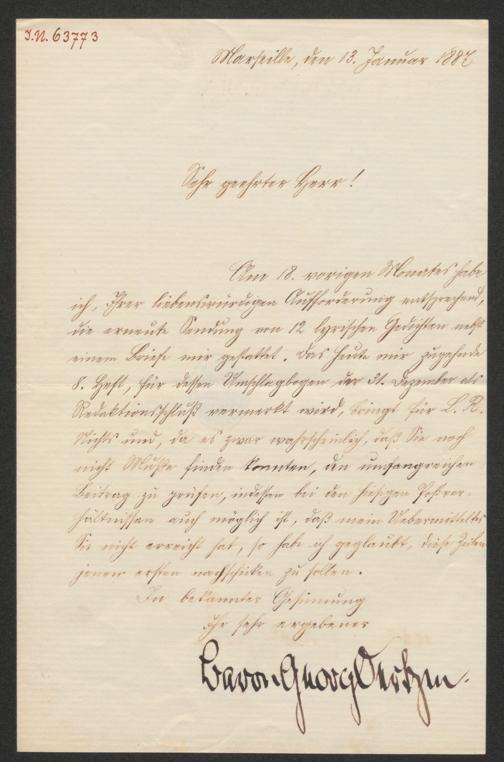 I.N. 63773
Marseille, den 13. Januar 1887
Sehr geehrter Herr!
Am 18. vorigen Monates habe
ich, Ihrer liebenswürdigen Aufforderung entsprechend,
die erneute Sendung von 12 lyrischen Gedichten nebst
einem Briefe mir gestattet. Das heute mir zugehende
8. Heft, für dessen Umschlagbogen der 31. Dezember als
Redaktionsschluß vermerkt wird, bringt für L. R.
Nichts und, da es zwar wahrscheinlich, daß Sie noch
nicht Muße finden konnten, den umfangreichen
Beitrag zu prüfen, indessen bei den hiesigen Postver-
hältnissen auch möglich ist, daß mein Uebermitteltes
Sie nicht erreicht hat, so habe ich geglaubt, diese Zeilen
jenen ersten nachschicken zu sollen.
In bekannter Gesinnung
Ihr sehr ergebener
Baron Georg Oertzen.